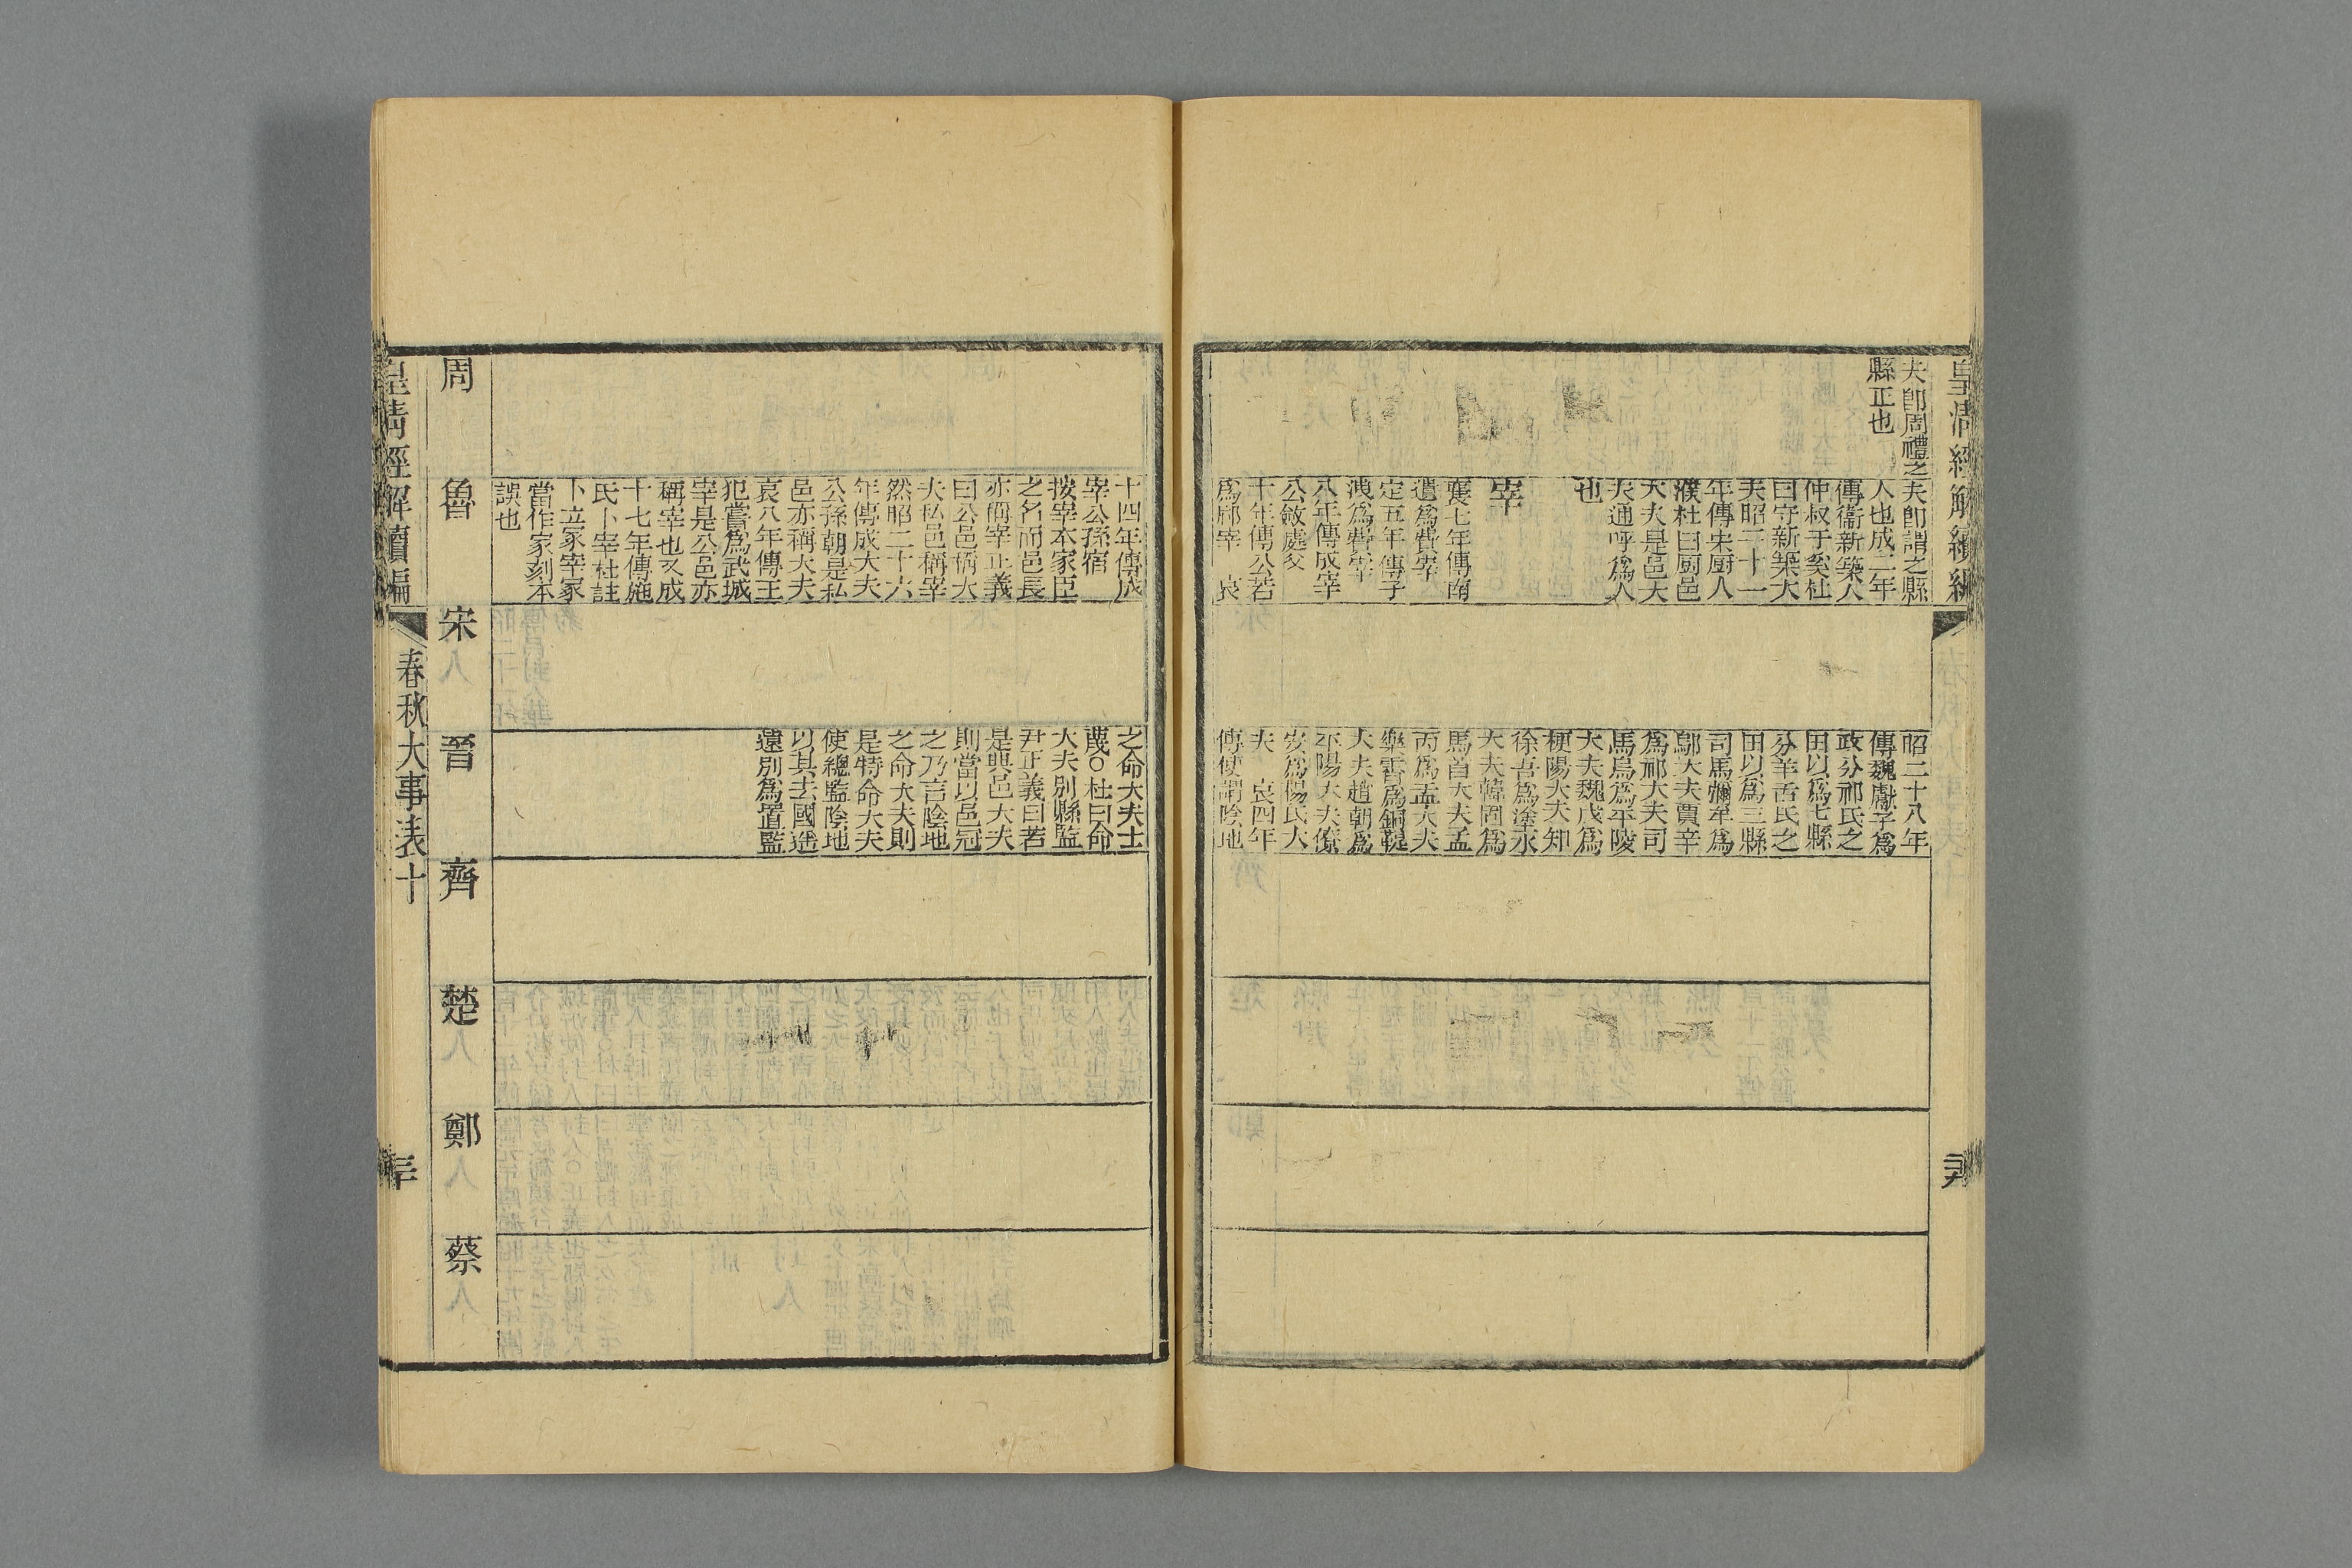 皇清經解續編
夫卽周禮之
縣正也
夫卽謂之縣
人也成二年
傳衞新築人
仲叔于奚杜
曰守新築大
夫昭二十一
年傳宋厨人
濮杜曰厨邑
大夫是邑大
夫通呼爲人
也
宰
襄七年傳南
遺爲費宰
定五年傳子
洩爲費宰
八年傳成宰
公斂處父
十年傳公若
爲郈宰 哀
昭二十八年
傳魏獻子爲
政分祁氏之
田以爲七縣
分羊舌氏之
田以爲三縣
司馬彌牟爲
鄔大夫賈辛
爲祁大夫司
馬烏爲平陵
大夫魏戊爲
梗陽大夫知
徐吾爲塗水
大夫韓固爲
馬首大夫孟
丙爲盂大夫
樂霄爲銅鞮
大夫趙朝爲
平陽大夫僚
安爲楊氏大
夫 哀四年
傳使謂陰地
十四年傳成
宰公孫宿
按宰本家臣
之名而邑長
亦稱宰正義
曰公邑稱大
夫私邑稱宰
然昭二十六
年傳成大夫
公孫朝是私
邑亦稱大夫
哀八年傳王
犯嘗爲武城
宰是公邑亦
稱宰也又成
十七年傳施
氏卜宰杜註
卜立家宰家
當作冢刻本
誤也
之命大夫士
蔑○杜曰命
大夫別縣監
尹正義曰若
是典邑大夫
則當以邑冠
之乃言陰地
之命大夫則
是特命大夫
使總監陰地
以其去國遥
遠別爲置監
周
魯
宋
晉
齊
楚
鄭
蔡
皇清經解續編
春秋大事表十